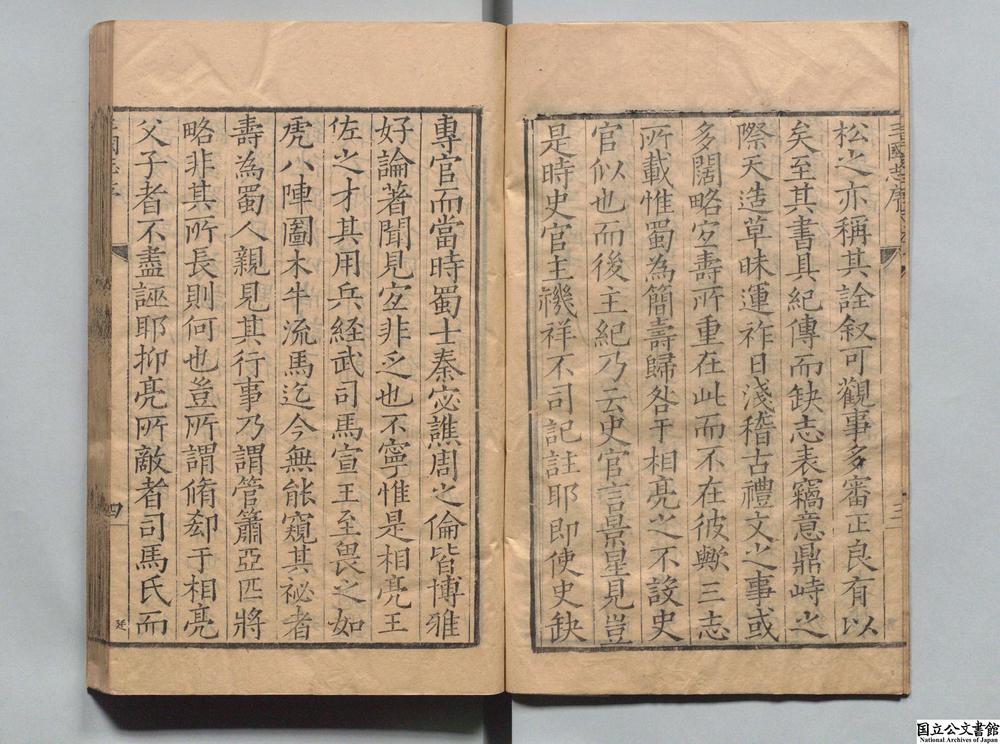 松之亦稱其詮叙可觀事多審正良有以
矣至其書具紀傳而缺志表竊意鼎峙之
際天造草昧運祚日淺稽古禮文之事或
多闊略㝎壽所重在此而不在彼歟三志
所載惟蜀為簡壽歸咎于相亮之不設史
官似也而後主紀乃云史官言景星見豈
是時史官主禨祥不司記註耶即使史缺
專官而當時蜀士秦宓譙周之倫皆博雅
好論著聞見㝎非乏也不寧惟是相亮王
佐之才其用兵経武司馬宣王至畏之如
虎八陣圖木牛流馬迄今無能窺其祕者
壽為蜀人親見其行事乃謂管簫亞匹將
略非其所長則何也豈所謂脩郄于相亮
父子者不盡誣耶抑亮所敵者司馬氏而
三國志序
三
三國志序
四
廷
国立公文書館
National Archives of Japan